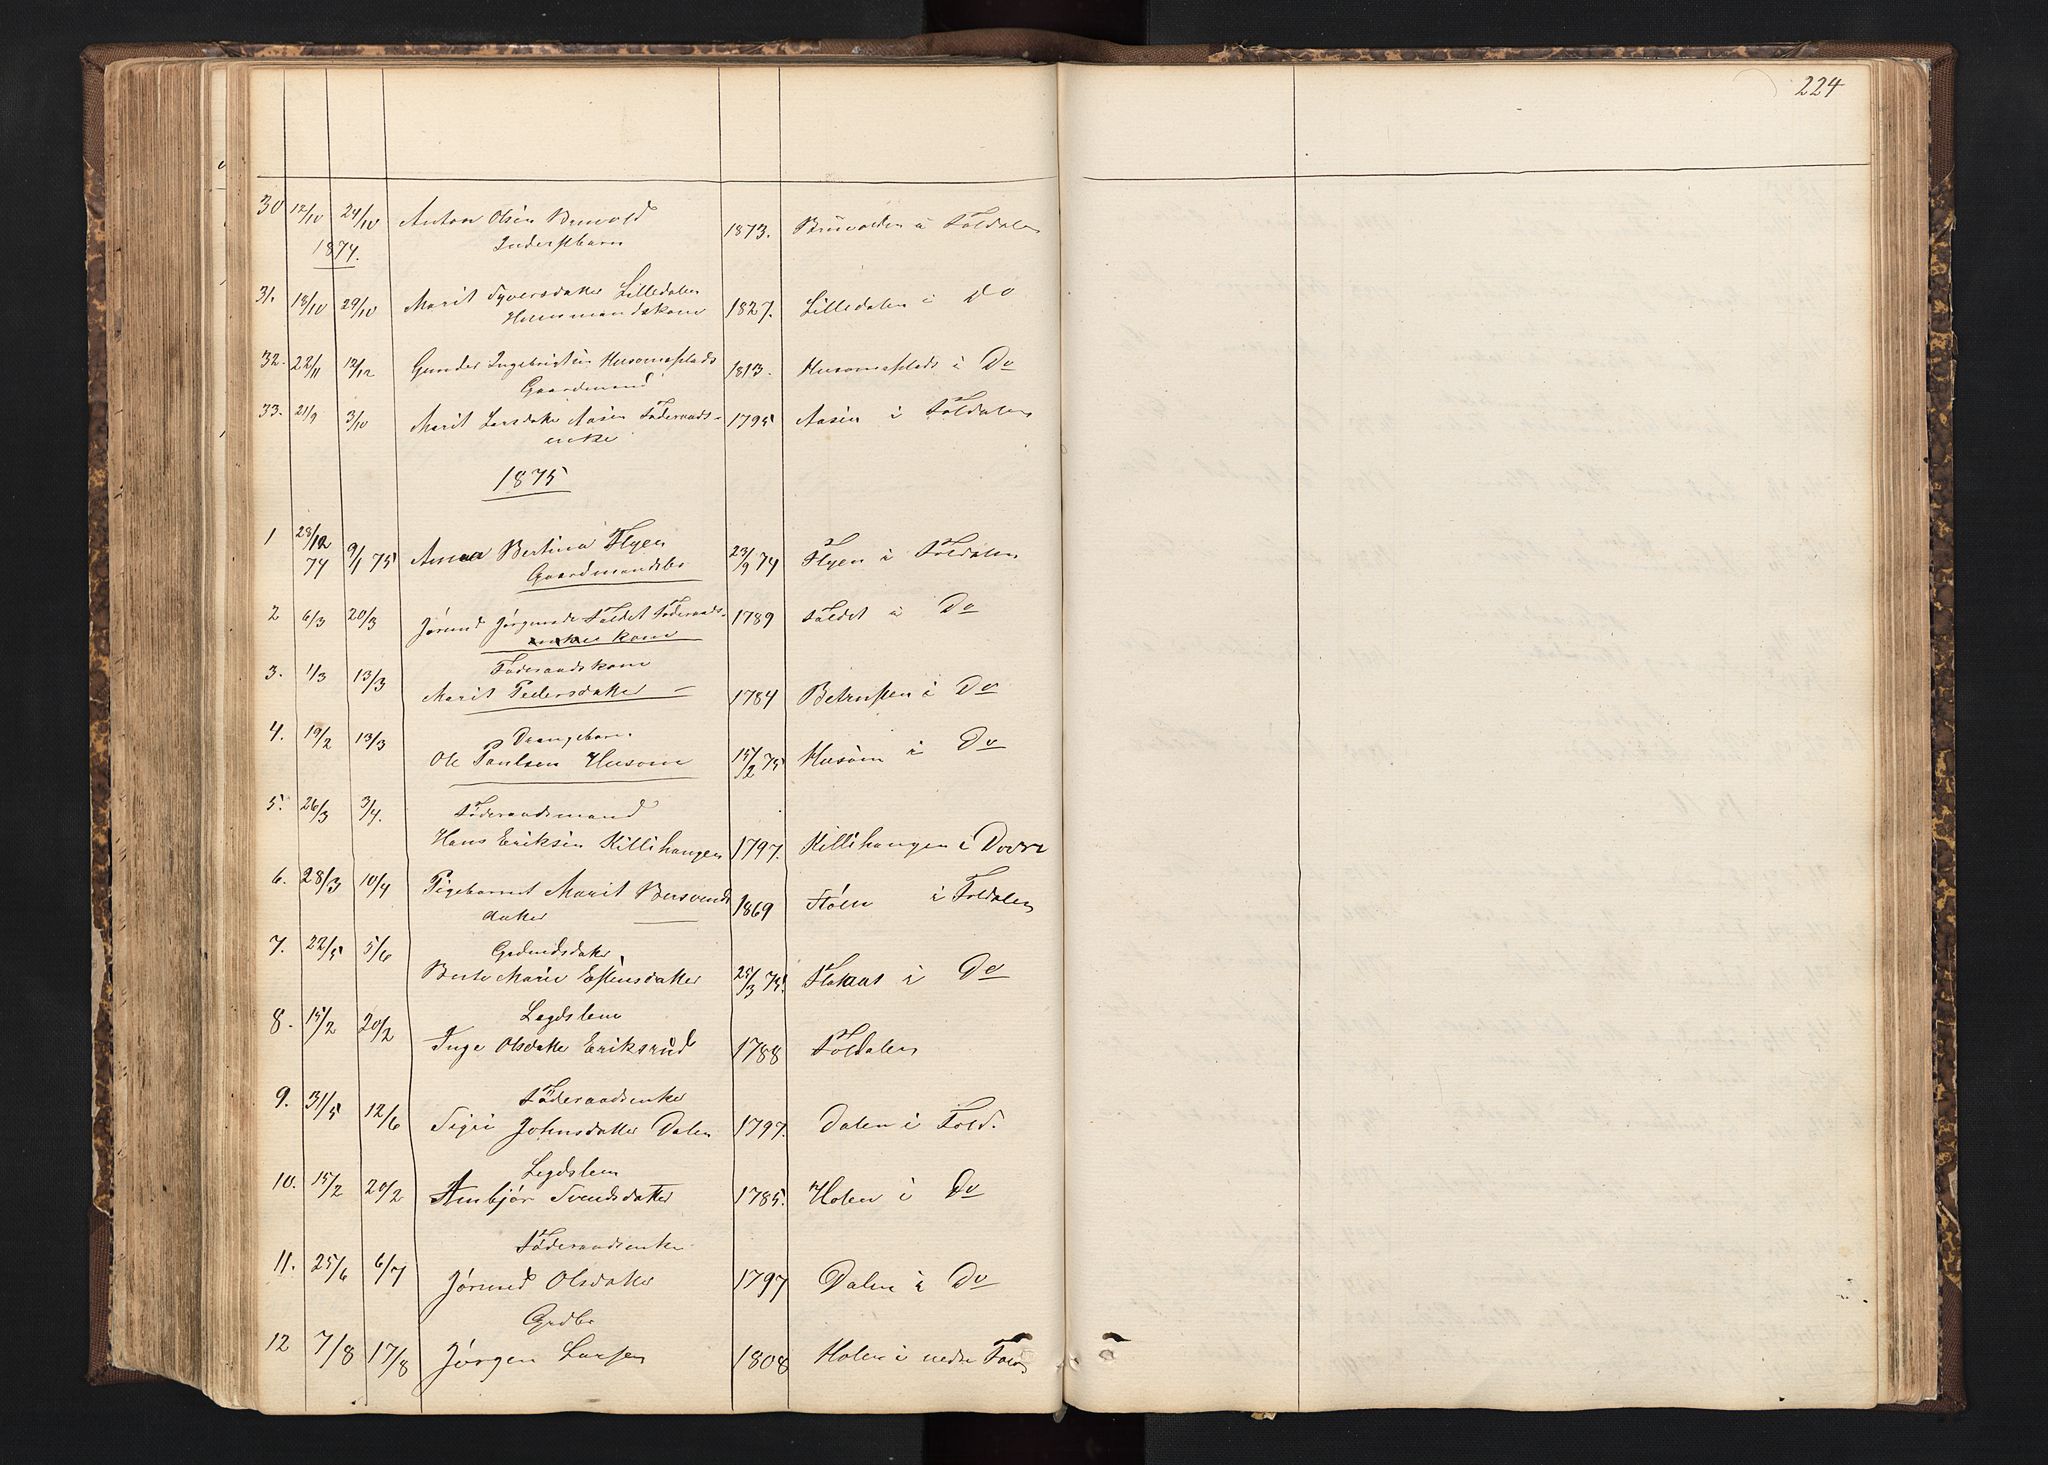 224
30 12/10 24/10 Anton Olsen Bruvold 1873. Bruvolden i Foldalen
1874. Inderstbarn
31. 18/10 29/10 Marit Syversdatter Lilledalen 1827. Lilledalen i Do
Huusmandskone
32. 22/11 12/12 Gunder Ingebrigtsen Husomsplads 1813. Husomsplads i Do
Gaardmand
33. 21/9 3/10 Marit Larsdatter Aasen Føderaads- 1795 Aasen i Foldalen
enke
1875
1 28/12 74 9/1 75 Anna Bertina Flyen 23/9 74 Flyen i Foldalen
Gaardmandsbr
2 6/3 20/3 Jørund Jørgensdr Foldet Føderaads- 1789 Foldet i Do
kone
Føderaadskone
3. 1/3 13/3 Marit Pedersdatter – 1784 Betrusten i Do
Drengebarn.
4. 19/2 13/3 Ole Paulsen Husom 15/2 75 Husom i Do
Føderaadsmand
5. 26/3 3/4. Hans Eriksen Killihaugen 1797. Killihaugen i Dovre
6. 28/3 10/4 Pigebarnet Marit Bersvends 1869 Stølen i Foldalen
datter
Grdmdsdatter
7. 22/5 5/6 Berte Marie Estensdatter 25/3 75. i Do
Lægdslem
8. 15/2 20/2 Inge Olsdatter Eriksrud 1788 Foldalen
Føderaadsenke
9. 31/5 12/6 Sigri Johnsdatter Dalen 1797. Dalen i Fold.
Legdslem
10. 15/2 20/2 Ambjør Svendsdatter 1785. Holen i Do
Føderaadsenke
11. 25/6 6/7 Jørund Olsdatter 1797 Dalen i Do
Grdbr
12 7/8 17/8 Jørgen Larsen 1808 Holen i nedre